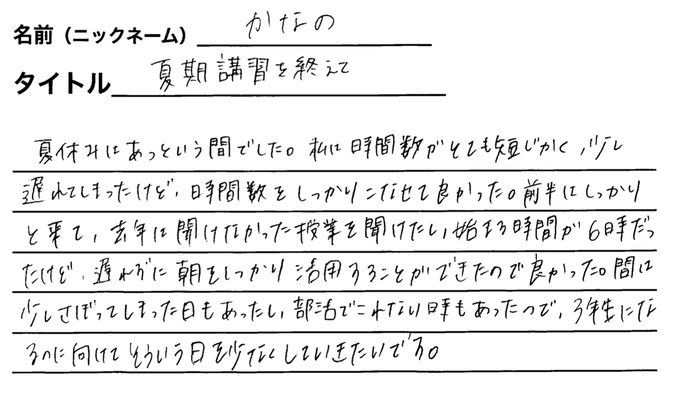 名前（ニックネーム） かなの
タイトル 夏期講習を終えて
夏休みはあっという間でした。私は時間数がとても短じかく、少し
遅れてしまったけど、時間数をしっかりこなせて良かった。前半はしっかり
と来て、去年は聞けなかった授業を聞けたし、始まる時間が6時だっ
たけど、遅れずに朝をしっかり活用することができたので良かった。間は
少しさぼってしまった日もあったし、部活でこれない時もあったので、3年生にな
るのに向けてそういう日を少なくしていきたいです。